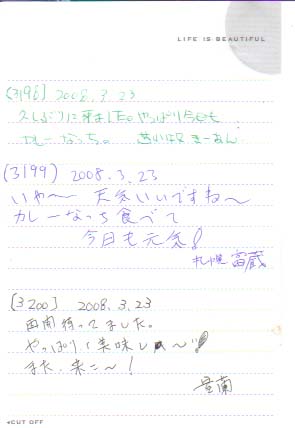 LIFE IS BEAUTIFUL
(3198) 2008.3.23
久しぶりに来ました。やっぱり今日も
カレーなっち。
(3199) 2008.3.23
いや〜 天気いいですね〜
カレーなっち食べて
今日も元気!
札幌 富蔵
(3200) 2008.3.23
再開待ってました。
やっぱり美味しい〜!
また、来こ〜!
CUT OFF